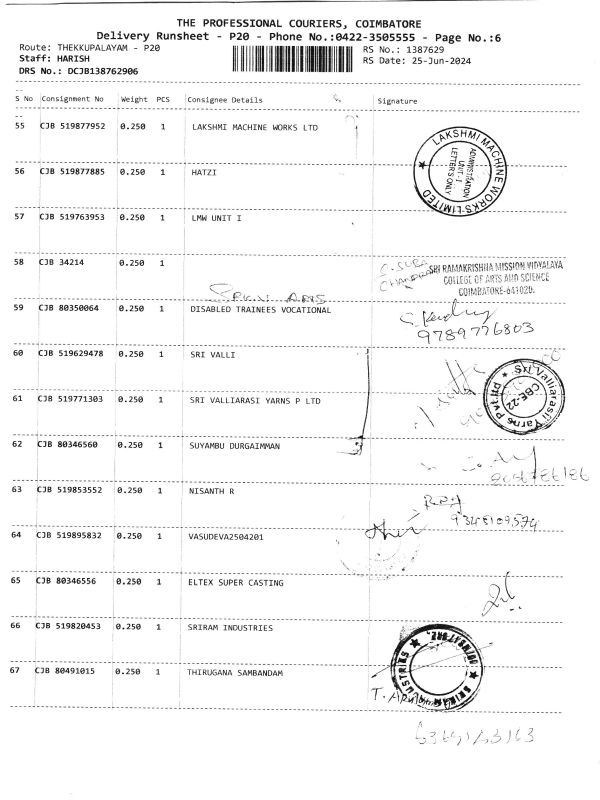 THE PROFESSIONAL COURIERS, COIMBATORE
Delivery Runsheet - P20 - Phone No.:0422-3505555 - Page No.:6
Route: THEKKUPALAYAM - P20 RS No.: 1387629
Staff: HARISH RS Date: 25-Jun-2024
DRS No.: DCJB138762906
S No Consignment No Weight PCS Consignee Details Signature
55 CJB 519877952 0.250 1 LAKSHMI MACHINE WORKS LTD
LAKSHMI MACHINE WORKS LIMITED
ADMINISTRATION
UNIT-I
LETTERS ONLY
56 CJB 519877885 0.250 1 HATZI
57 CJB 519763953 0.250 1 LMW UNIT I
58 CJB 34214 0.250 1
SRI RAMAKRISHNA MISSION VIDYALAYA
COLLEGE OF ARTS AND SCIENCE
COIMBATORE-641020.
ARTS
59 CJB 80350064 0.250 1 DISABLED TRAINEES VOCATIONAL
9789776803
60 CJB 519629478 0.250 1 SRI VALLI
61 CJB 519771303 0.250 1 SRI VALLIARASI YARNS P LTD
Sri Valliarasi Yarns Pvt.ltd
CBE-22
62 CJB 80346560 0.250 1 SUYAMBU DURGAIMMAN
63 CJB 519853552 0.250 1 NISANTH R
64 CJB 519895832 0.250 1 VASUDEVA2504201
65 CJB 80346556 0.250 1 ELTEX SUPER CASTING
66 CJB 519820453 0.250 1 SRIRAM INDUSTRIES
67 CJB 80491015 0.250 1 THIRUGANA SAMBANDAM